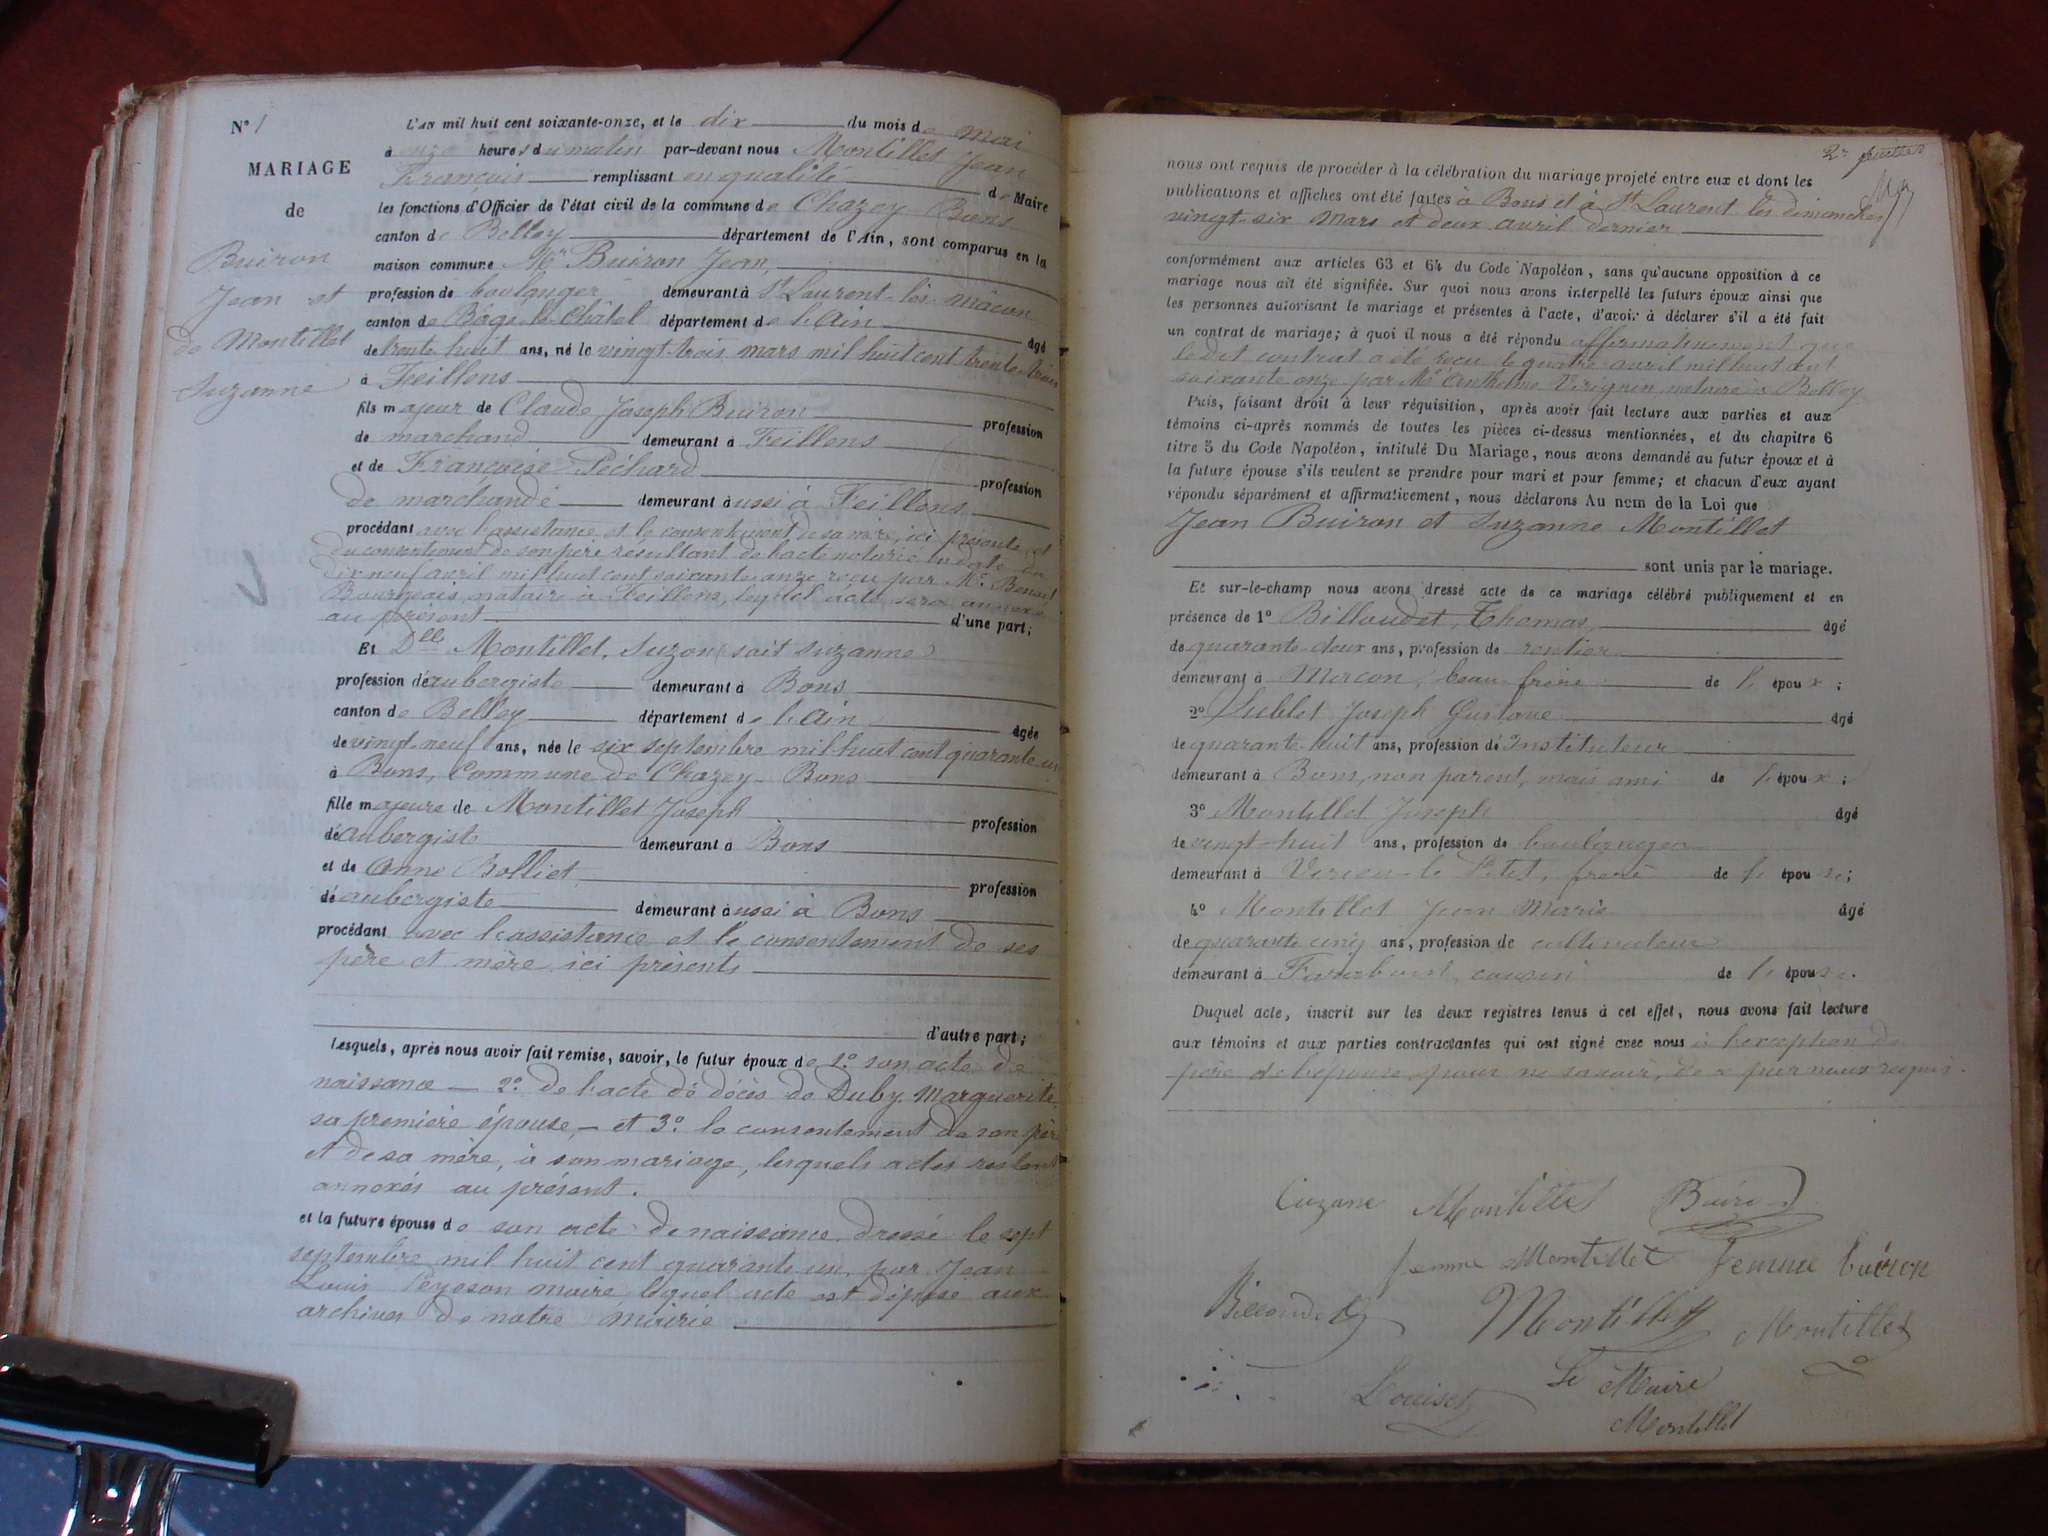 N° 1
MARIAGE
de
Buiron
Jean et
de Montillet
Suzanne
L'an mil huit cent soixante-onze, et le dix du mois de Mai
à onze heures du matin par-devant nous Montillet Jean
François remplissant en qualité de Maire
les fonctions d'Officier de l'état civil de la commune de Chazey Bons
canton de Belley département de l'Ain, sont comparus en la
maison commune Mr Buiron Jean,
profession de boulanger demeurant à St Laurent-lès-Mâcon
canton de Bagé-le-Châtel département de l'Ain âgé
de trente huit ans, né le vingt-trois mars mil huit cent trente-trois
à Feillens
fils majeur de Claude Joseph Buiron profession
de marchand demeurant à Feillens
et de Françoise Péchard profession
de marchande demeurant aussi à Feillens
procédant avec l'assistance et le consentement de sa mère, ici présente, et
du consentement de son père résultant de l'acte notarié en date du
dix neuf avril mil huit cent soixante onze reçu par Me Benoit
Bourgeois notaire à Feillens, lequel acte sera annexé
au présent d'une part;
Et Dlle Montillet, Suzon (soit Suzanne)
profession d'aubergiste demeurant à Bons
canton de Belley département de l'Ain âgée
de vingt-neuf ans, née le six septembre mil huit cent quarante un
à Bons, Commune de Chazey-Bons
fille majeure de Montillet Joseph profession
d'aubergiste demeurant à Bons
et de Anne Bolliet profession
d'aubergiste demeurant aussi à Bons
procédant avec l'assistance et le consentement de ses
père et mère ici présents
d'autre part;
Lesquels, après nous avoir fait remise, savoir, le futur époux de 1° son acte de
naissance — 2° de l'acte de décès de Duby Marguerite,
sa première épouse, — et 3° le consentement de son père
et de sa mère, à son mariage, lesquels actes restent
annexés au présent.
et la future épouse de son acte de naissance dressé le sept
septembre mil huit cent quarante un, par Jean
Louis Peyeson maire lequel acte est déposé aux
archives de notre mairie
2e feuillet
nous ont requis de procéder à la célébration du mariage projeté entre eux et dont les
publications et affiches ont été faites à Bons et à St Laurent les dimanches
vingt-six Mars et deux avril dernier
conformément aux articles 63 et 64 du Code Napoléon, sans qu'aucune opposition à ce
mariage nous ait été signifiée. Sur quoi nous avons interpellé les futurs époux ainsi que
les personnes autorisant le mariage et présentes à l'acte, d'avoir à déclarer s'il a été fait
un contrat de mariage; à quoi il nous a été répondu affirmativement que
le dit contrat a été reçu le quatre avril mil huit cent
soixante onze par Me Anthelme Virignin, notaire à Belley
Puis, faisant droit à leur réquisition, après avoir fait lecture aux parties et aux
témoins ci-après nommés de toutes les pièces ci-dessus mentionnées, et du chapitre 6
titre 5 du Code Napoléon, intitulé Du Mariage, nous avons demandé au futur époux et à
la future épouse s'ils veulent se prendre pour mari et pour femme; et chacun d'eux ayant
répondu séparément et affirmativement, nous déclarons Au nom de la Loi que
Jean Buiron et Suzanne Montillet
sont unis par le mariage.
Et sur-le-champ nous avons dressé acte de ce mariage célébré publiquement et en
présence de 1° Billoudet, Thomas, âgé
de quarante-deux ans, profession de rentier
demeurant à Macon, beau frère de l'époux;
2° Joseph Gustave âgé
de quarante huit ans, profession d'Instituteur
demeurant à Bons, non parent, mais ami de l'époux;
3° Montillet Joseph âgé
de vingt-huit ans, profession de boulanger
demeurant à Virieu-le-Petit, frère de l'épouse;
4° Montillet Jean Marie âgé
de quarante cinq ans, profession de cultivateur
demeurant à cousin de l'épouse.
Duquel acte, inscrit sur les deux registres tenus à cet effet, nous avons fait lecture
aux témoins et aux parties contractantes qui ont signé avec nous à l'exception du
père de l'épouse pour ne savoir, de ce par nous requis.
Cuzane Montillet Buiron
femme Montillet femme buéron
Billoudet Montillet Montillet
Le Maire
Montillet